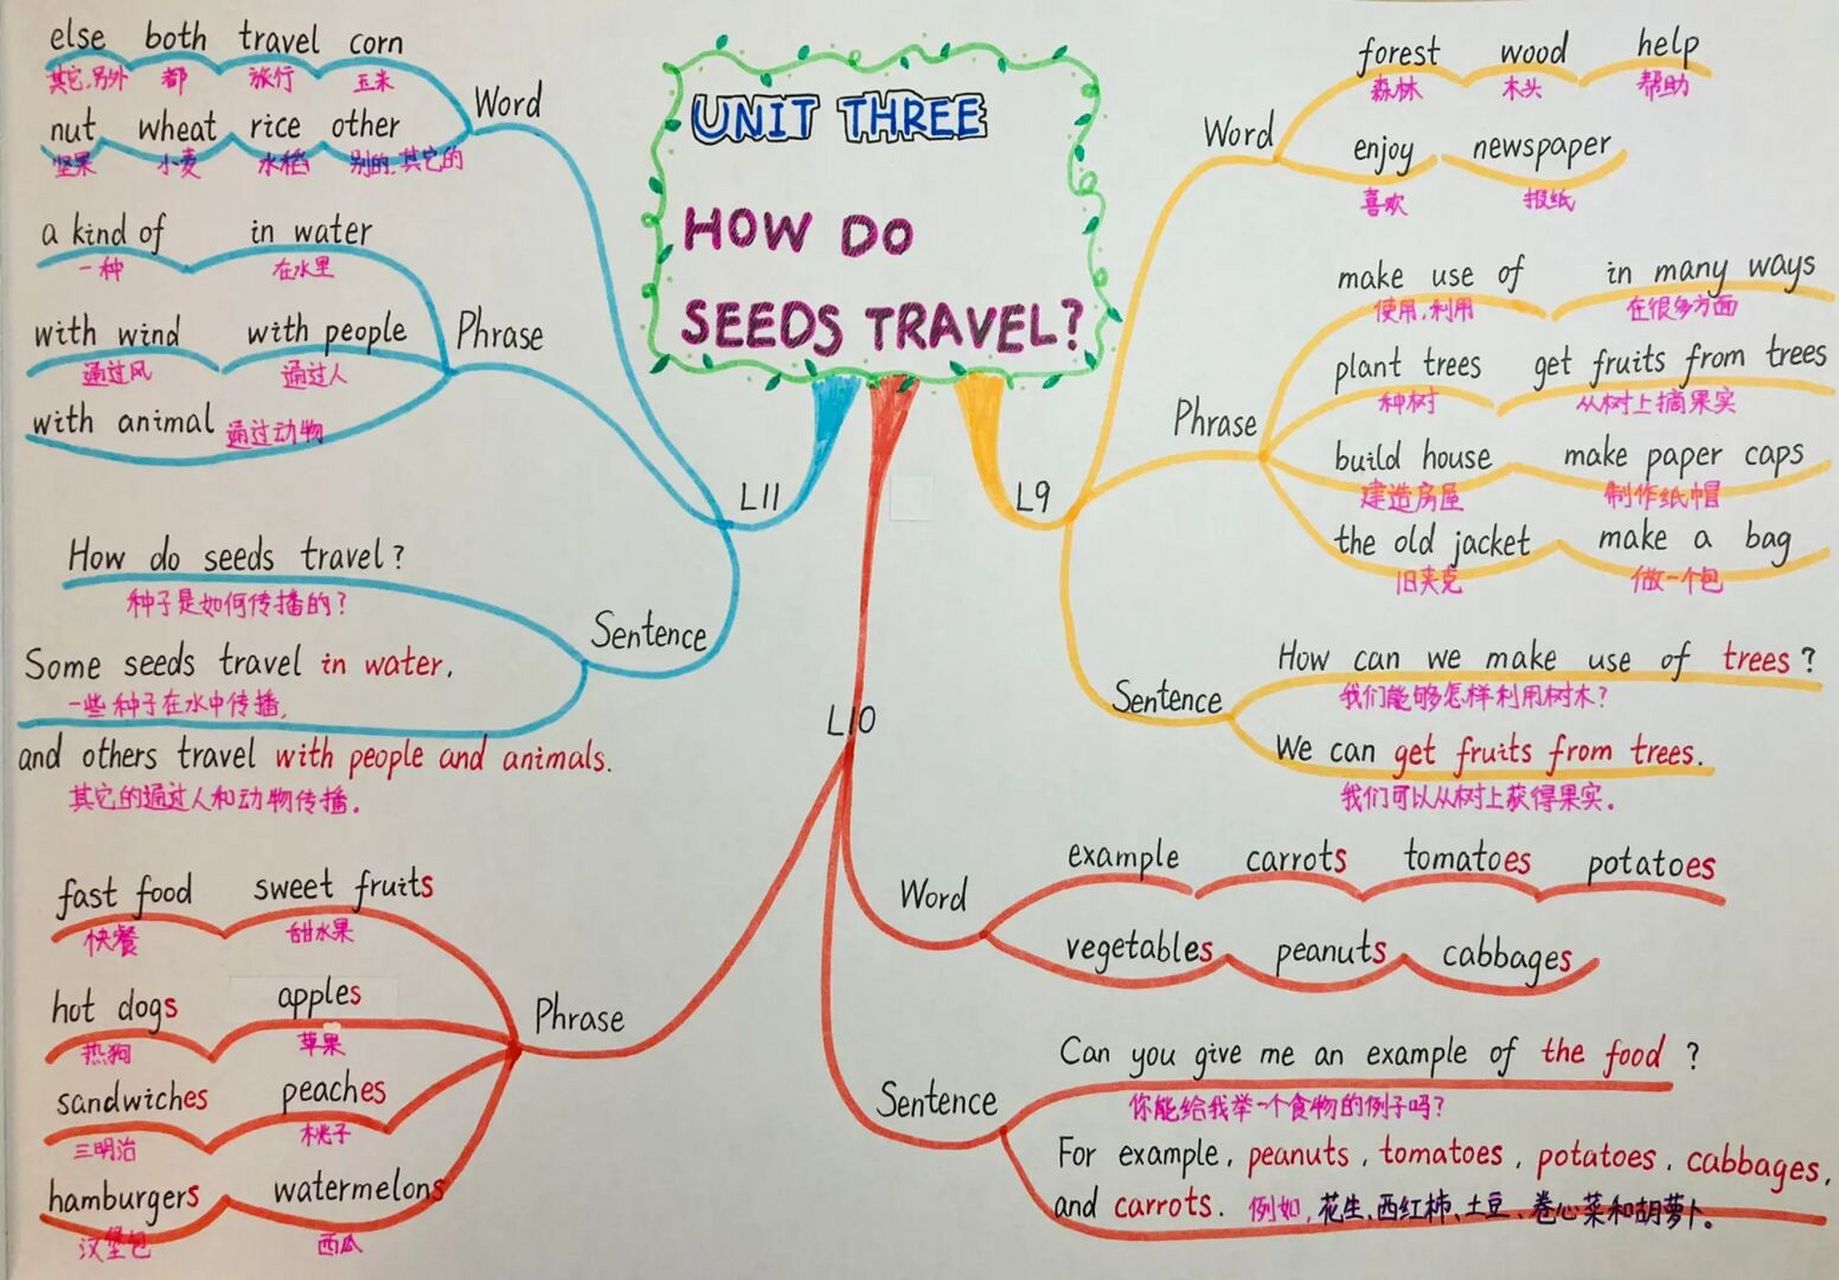 UNIT THREE
HOW DO
SEEDS TRAVEL?
L11
Word
else both travel corn
其它,另外 都 旅行 玉米
nut wheat rice other
坚果 小麦 水稻 别的,其它的
Phrase
a kind of in water
一种 在水里
with wind with people
通过风 通过人
with animal 通过动物
Sentence
How do seeds travel?
种子是如何传播的?
Some seeds travel in water,
一些种子在水中传播,
and others travel with people and animals.
其它的通过人和动物传播。
L9
Word
forest wood help
森林 木头 帮助
enjoy newspaper
喜欢 报纸
Phrase
make use of in many ways
使用,利用 在很多方面
plant trees get fruits from trees
种树 从树上摘果实
build house make paper caps
建造房屋 制作纸帽
the old jacket make a bag
旧夹克 做一个包
Sentence
How can we make use of trees?
我们能够怎样利用树木?
We can get fruits from trees.
我们可以从树上获得果实。
L10
Word
example carrots tomatoes potatoes
vegetables peanuts cabbages
Phrase
fast food sweet fruits
快餐 甜水果
hot dogs apples
热狗 苹果
sandwiches peaches
三明治 桃子
hamburgers watermelons
汉堡包 西瓜
Sentence
Can you give me an example of the food?
你能给我举一个食物的例子吗?
For example, peanuts, tomatoes, potatoes, cabbages,
and carrots. 例如,花生、西红柿、土豆、卷心菜和胡萝卜。